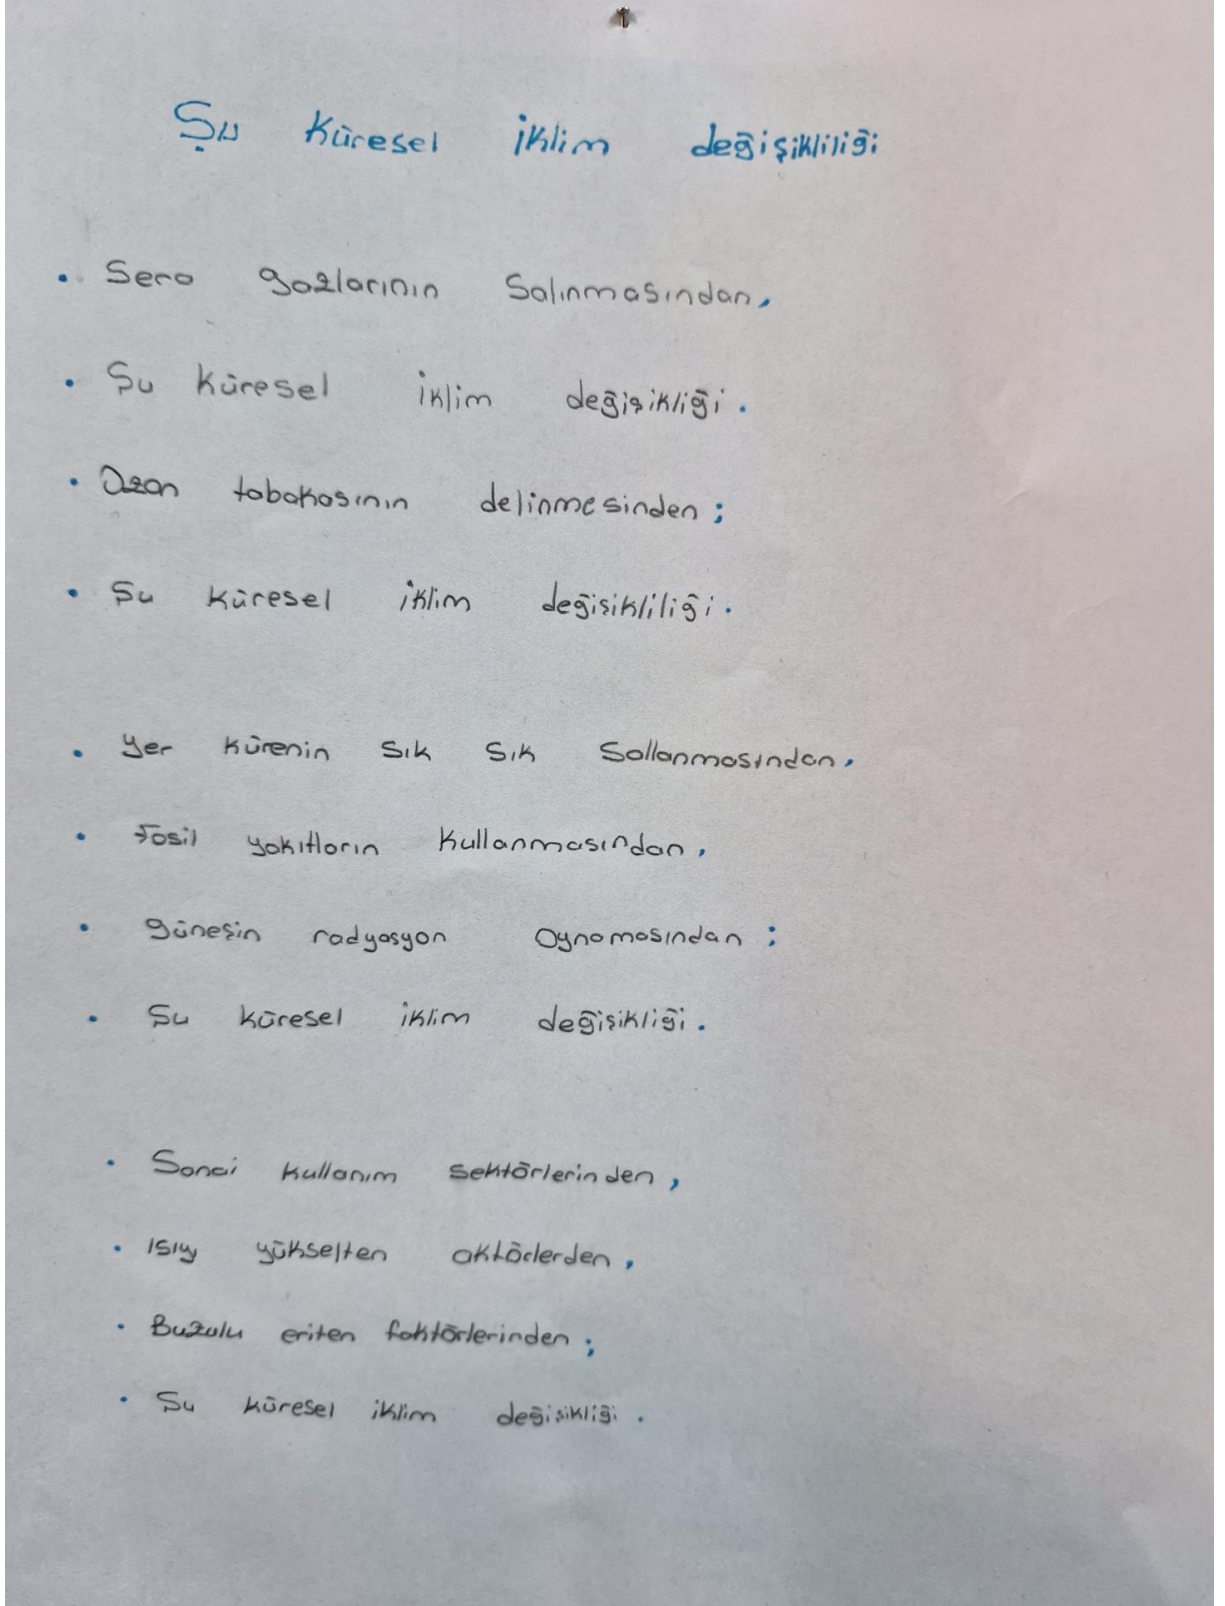 Şu Küresel iklim değişikliliği
• Sera gazlarının Salınmasından,
• Şu Küresel iklim değişikliği.
• Ozon tabakasının delinmesinden;
• Şu küresel iklim değişikliliği.
• Yer kürenin sık sık Sallanmasından,
• Fosil yakıtların Kullanmasından,
• Güneşin radyasyon Oynamasından;
• Şu küresel iklim değişikliği.
• Sanai kullanım sektörlerinden,
• Isıyı yükselten aktörlerden,
• Buzulu eriten faktörlerinden;
• Şu küresel iklim değişikliği.